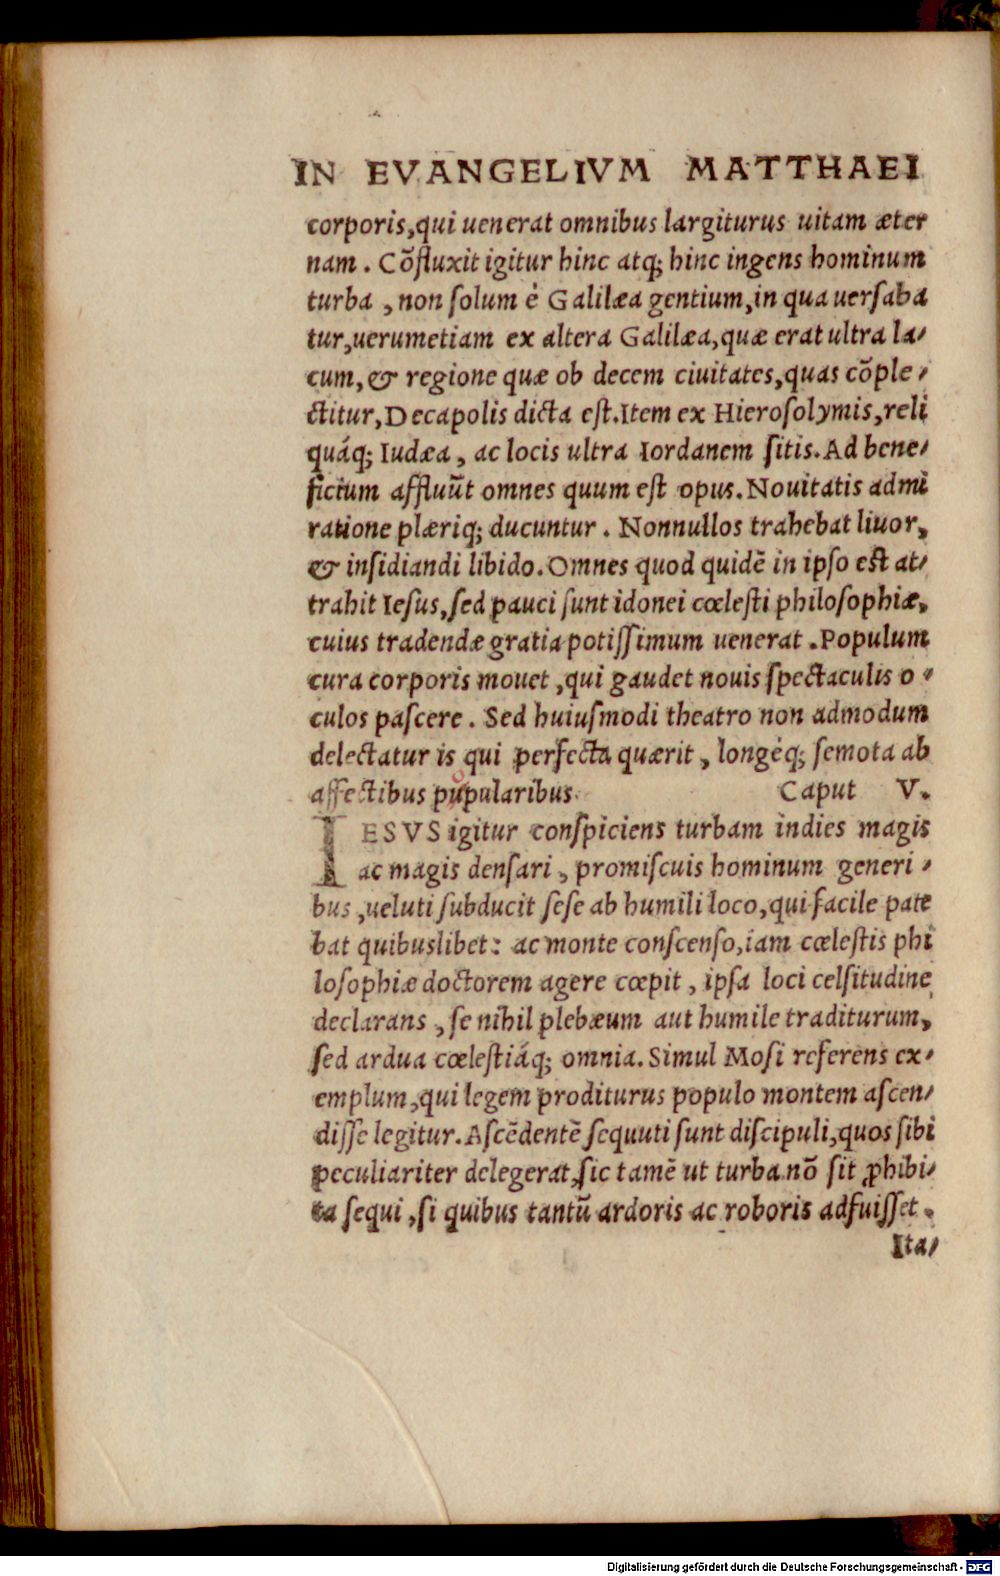 IN EVANGELIVM MATTHAEI
corporis,qui uenerat omnibus largiturus uitam æter
nam. Cõfluxit igitur hinc atq; hinc ingens hominum
turba, non ſolum è Galilæa gentium,in qua uerſaba
tur,uerumetiam ex altera Galilæa,quæ erat ultra la⸗
cum,& regione quæ ob decem ciuitates,quas cõple⸗
ctitur,Decapolis dicta eſt.Item ex Hieroſolymis,reli
quáq; Iudæa, ac locis ultra Iordanem ſitis.Ad bene⸗
ficium affluũt omnes quum eſt opus.Nouitatis admi
ratione plæriq; ducuntur. Nonnullos trahebat liuor,
& inſidiandi libido.Omnes quod quidẽ in ipſo eſt at⸗
trahit Ieſus,ſed pauci ſunt idonei cœleſti philoſophiæ,
cuius tradendæ gratia potiſſimum uenerat.Populum
cura corporis mouet,qui gaudet nouis ſpectaculis o⸗
culos paſcere. Sed huiuſmodi theatro non admodum
delectatur is qui perfecta quærit, longéq; ſemota ab
affectibus pupularibus. Caput V.
o
IESVS igitur conſpiciens turbam indies magis
ac magis denſari, promiſcuis hominum generi⸗
bus,ueluti ſubducit ſeſe ab humili loco,qui facile pate
bat quibuslibet: ac monte conſcenſo,iam cœleſtis phi
loſophiæ doctorem agere cœpit, ipſa loci celſitudine
declarans, ſe nihil plebæum aut humile traditurum,
ſed ardua cœleſtiáq; omnia.Simul Moſi referens ex⸗
emplum,qui legem proditurus populo montem aſcen⸗
diſſe legitur.Aſcẽdentẽ ſequuti ſunt diſcipuli,quos ſibi
peculiariter delegerat,ſic tamẽ ut turba nõ ſit ꝓhibi⸗
ta ſequi,ſi quibus tantũ ardoris ac roboris adfuiſſet.
Ita⸗
Digitalisierung gefördert durch die Deutsche Forschungsgemeinschaft - DFG